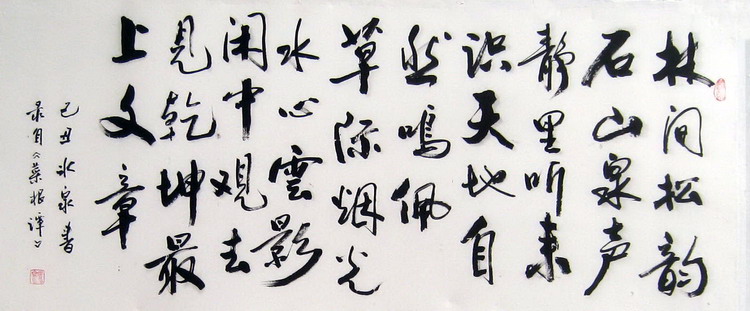 林间松韵
石山泉声
静里听来
识天地自
然鸣佩
草际烟光
水心雲影
闲中观去
見乾坤最
上文章
己丑冰泉書
录自《菜根谭》